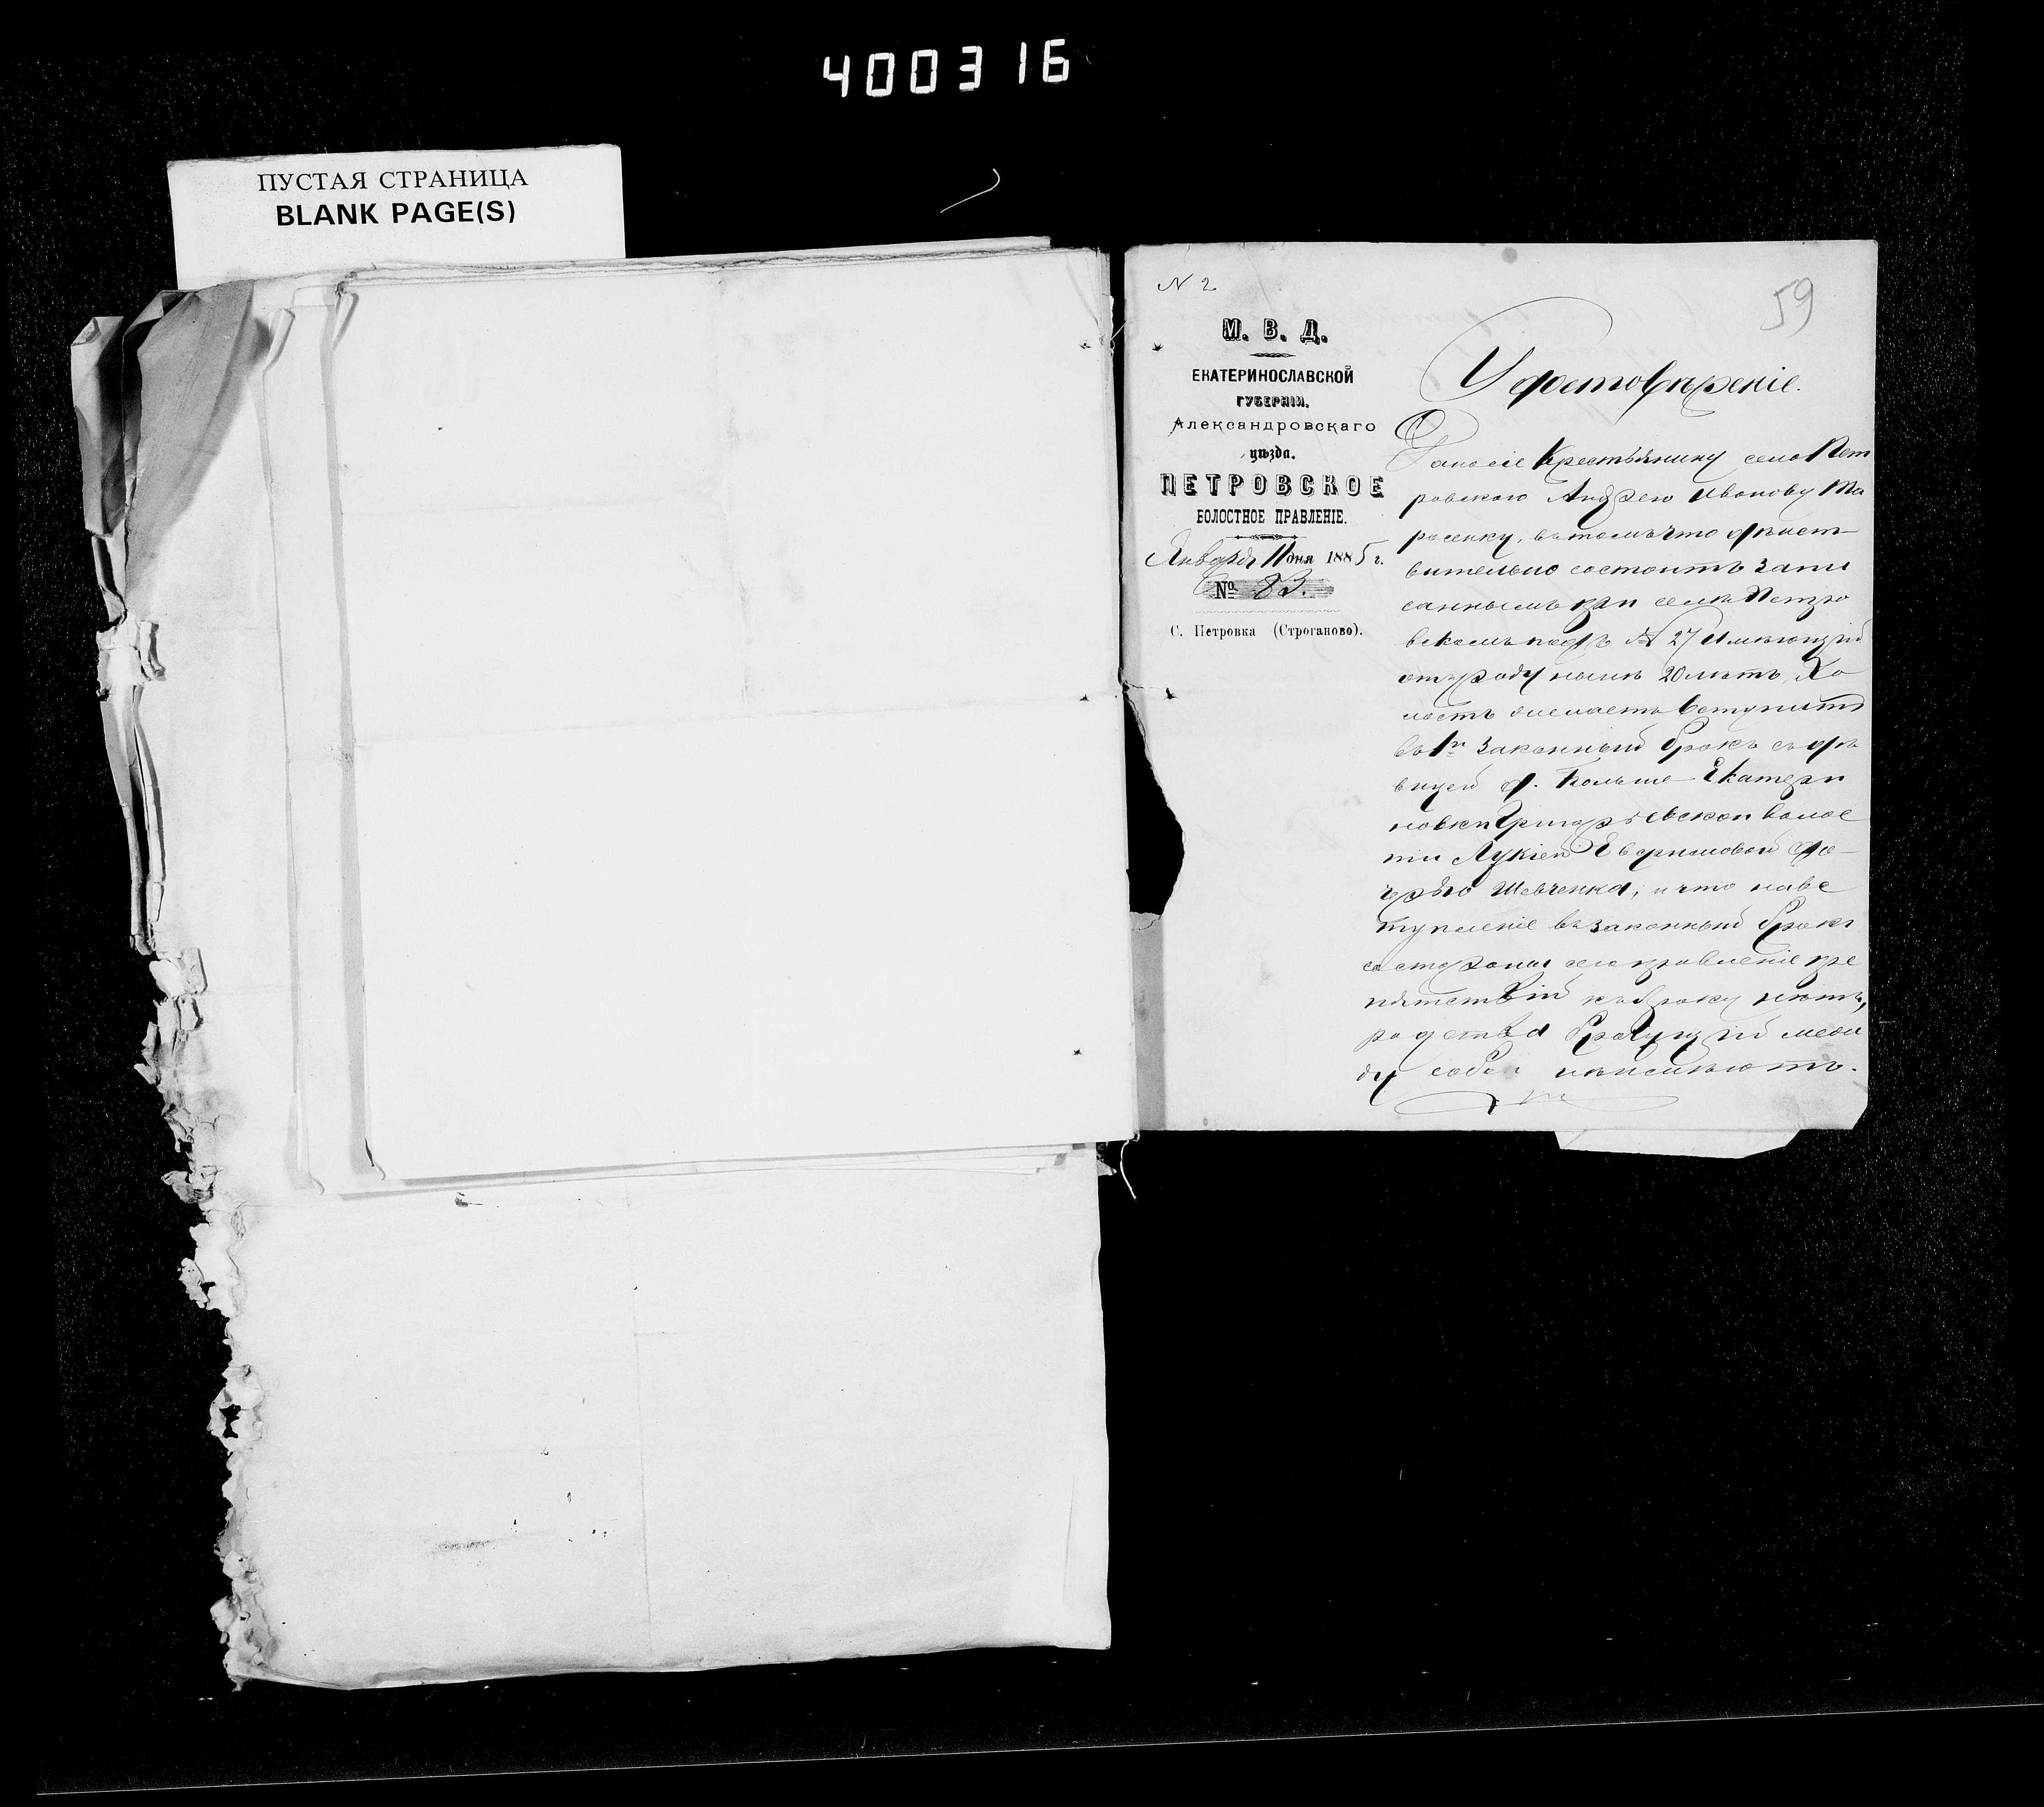 400316
ПУСТАЯ СТРАНИЦА
BLANK PAGE(S)
N 2
59
М. В. Д.
ЕКАТЕРИНОСЛАВСКОЙ
ГУБЕРНІИ.
Александровскаго
уѣзда.
ПЕТРОВСКОЕ
ВОЛОСТНОЕ ПРАВЛЕНІЕ.
Января 11 дня 1885 г.
№ 83.
С. Петровка (Строганово).
Удостовѣреніе.
Дано сіе Крестьянину села Пет
ровского Андрею Иванову Та
расенку, въ томъ что дѣйст-
вительно состоитъ запи
саннымъ при селѣ Петро
вскомъ подъ № 27 Имѣющій
отъ роду нынѣ 20 лѣтъ, Хо
лостъ желаетъ вступить
въ 1й законный бракъ съ дѣ
вицей д. Больше-Екатери
новки Григорьевской волос
ти Лукіей До
черью Шевченка, и что на вс
тупленіе въ законный бракъ
со стороны сего правленіе пре
пятствій къ браку нѣтъ,
родства брачущій меж
ду собой неимѣютъ.